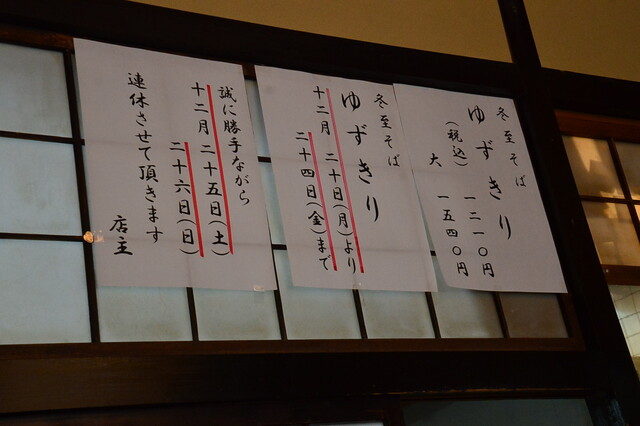 冬至そば
ゆずきり
一二一〇円
（税込）
大 一五四〇円
冬至そば
ゆずきり
十二月二十日（月）より
二十四日（金）まで
誠に勝手ながら
十二月二十五日（土）
二十六日（日）
連休させて頂きます
店主